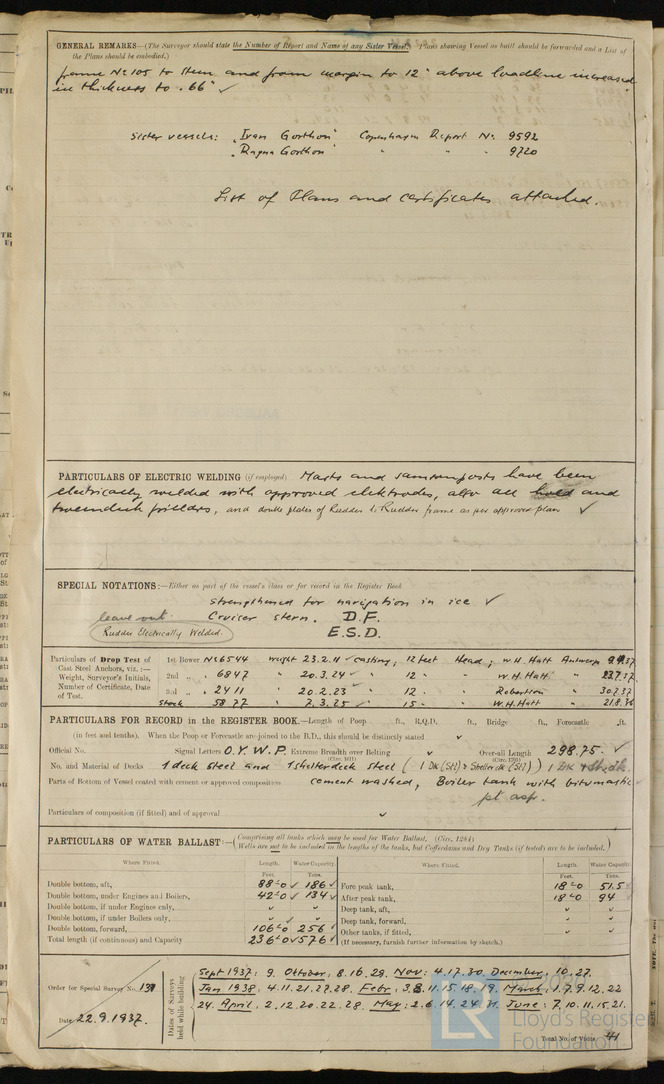 GENERAL REMARKS—(The Surveyor should state the Number of Report and Name of any Sister Vessel. Plans showing Vessel as built should be forwarded and a List of
the Plans should be embodied.)
frame No 105 to stem and from margin to 12" above loadline increased
in thickness to .66" ✓
Sister vessels: "Ivan Gorthon" Copenhagen Report No. 9592
"Ragna Gorthon" " " " 9720
List of Plans and certificates attached.
PARTICULARS OF ELECTRIC WELDING (if employed) Masts and samsonposts have been
electrically welded with approved elektrodes, also all hold and
tweendeck pillars, and double plates of Rudder to Rudder frame as per approved plan ✓
SPECIAL NOTATIONS:—Either as part of the vessel's class or for record in the Register Book
Strengthened for navigation in ice ✓
leave out. Cruiser stern. D.F.
Rudder Electrically Welded. E.S.D.
Particulars of Drop Test of 1st Bower No 6544 weight 23.2.11 ✓ casting, 12 feet Head; W.H. Hatt Antwerp 9.9.37
Cast Steel Anchors, viz.:— 2nd " 6847 " 20.3.24 ✓ " 12 " " W.H. Hatt " 23.7.37
Weight, Surveyor's Initials, 3rd " 2411 " 20.2.23 ✓ " 12 " " Robertson " 30.7.37
Number of Certificate, Date
of Test. Stock 5877 " 7.3.25 ✓ " 15 " " W.H. Hatt " 21.8.36
PARTICULARS FOR RECORD in the REGISTER BOOK.—Length of Poop ft., R.Q.D. ft., Bridge ft., Forecastle ft.
(in feet and tenths). When the Poop or Forecastle are joined to the B.D., this should be distinctly stated ✓
Official No. Signal Letters O.Y.W.P. Extreme Breadth over Belting ✓ Over-all Length 298.75. ✓
(Circ. 1611) (Circ. 1703)
No. and Material of Decks 1 deck steel and 1 shelterdeck steel (1 Dk (Stl) & Shelter dk (Stl)) 1 Dk & Sh.dk.
Parts of Bottom of Vessel coated with cement or approved composition cement washed, Boiler tank with bitumastic
pt asp.
Particulars of composition (if fitted) and of approval ✓
PARTICULARS OF WATER BALLAST:—(Comprising all tanks which may be used for Water Ballast. (Circ. 1284)
Wells are not to be included in the lengths of the tanks, but Cofferdams and Dry Tanks (if tested) are to be included.)
Where Fitted. Length. Water Capacity. Where Fitted. Length. Water Capacity.
Feet. Tons. Feet. Tons.
Double bottom, aft, 88'-0 ✓ 186 ✓ Fore peak tank, 18'-0 51.5 ✓
Double bottom, under Engines and Boilers, 42'-0 ✓ 134 ✓ After peak tank, 18'-0 94 ✓
Double bottom, if under Engines only, ✓ ✓ Deep tank, aft, ✓ ✓
Double bottom, if under Boilers only, ✓ ✓ Deep tank, forward, ✓ ✓
Double bottom, forward, 106'-0 256 ✓ Other tanks, if fitted, ✓ ✓
Total length (if continuous) and Capacity 236'-0 ✓ 576 ✓ (If necessary, furnish further information by sketch.)
Order for Special Survey No. 131
Date 22.9.1937.
Dates of Surveys
held while building
Sept 1937: 9. Oktober, 8.16.29. Nov: 4.17.30. December, 10.27.
Jan 1938, 4.11.21.27.28. Febr: 3.8.11.15.18.19. March: 1.7.9.12.22
24. April, 2.12.20.22.28. May: 2.6.14.24.31. June: 7.10.11.15.21.
Total No. of Visits 41
LR Lloyd's Register
Foundation